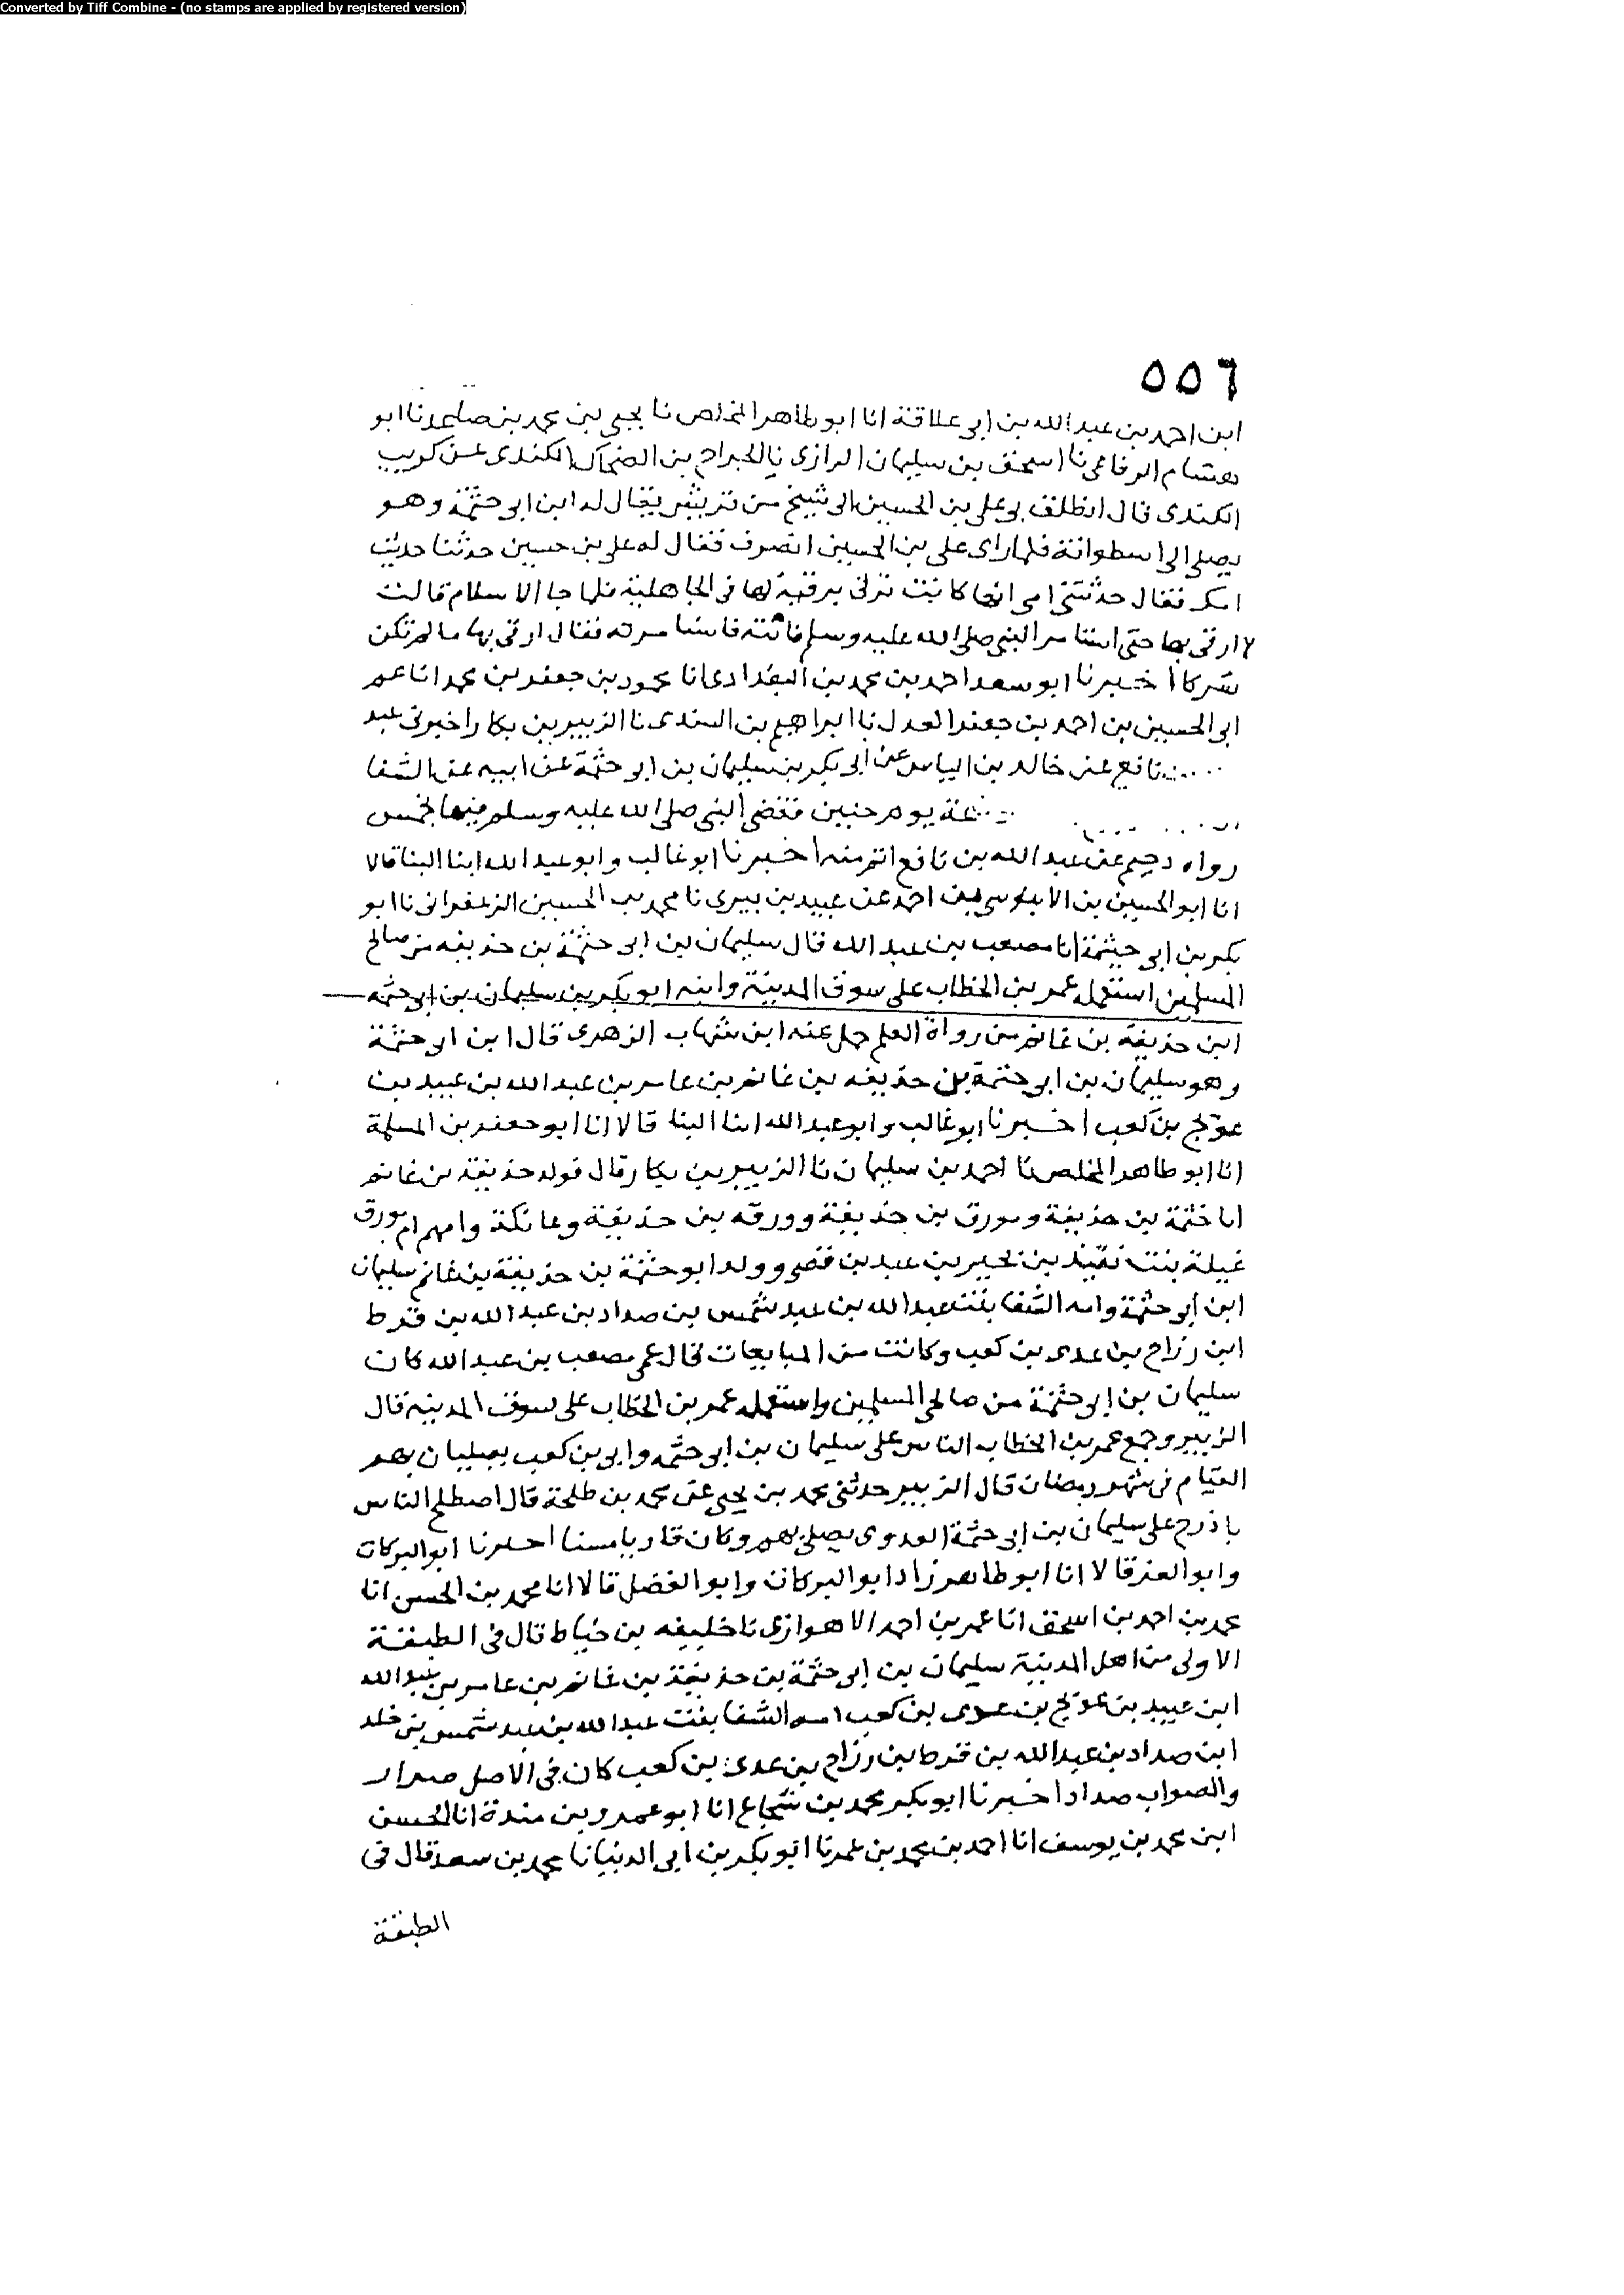 Converted by Tiff Combine - (no stamps are applied by registered version)
٥٥٦
ابن احمد بن عبد الله بن ابى علاقة انا ابو طاهر المخلص نا يحيى بن محمد بن صاعد نا ابو
هشام الرفاعى نا اسحق بن سليمان الرازى نا الجراح بن الضحاك الكندى عن كريب
الكندى قال انطلق بى على بن الحسين الى شيخ من قريش يقال له ابن ابى حثمة وهو
يصلى الى اسطوانة فلما راى على بن الحسين انصرف فقال له على بن حسين حدثنا حديث
امك فقال حدثتنى امى انها كانت ترقى برقية لها فى الجاهلية فلما جا الاسلام قالت
لا ارقى بها حتى استامر النبى صلى الله عليه وسلم فاتته فاستامرته فقال ارقى بها ما لم تكن
شركا اخبرنا ابو سعد احمد بن محمد بن البغدادى انا محمود بن جعفر بن محمد انا عم
ابى الحسين بن احمد بن جعفر العدل نا ابراهيم بن السندى نا الزبير بن بكار اخبرنى عبد
نافع عن خالد بن الياس عن ابى بكر بن سليمان بن ابى حثمة عن ابيه عن الشفا
يوم حنين فقضى النبى صلى الله عليه وسلم فيها بخمس
رواه دحيم عن عبد الله بن نافع اتم منه اخبرنا ابو غالب وابو عبد الله ابنا البنا قالا
انا ابو الحسين بن الابنوسى عن احمد عن عبيد بن بيرى نا محمد بن الحسين الزعفرانى نا ابو
بكر بن ابى خيثمة انا مصعب بن عبد الله قال سليمان بن ابى حثمة بن حذيفه من صالح
المسلمين استعمله عمر بن الخطاب على سوق المدينة وابنه ابو بكر بن سليمان بن ابى حثمه
ابن حذيفة بن غانم من رواة العلم حمل عنه ابن شهاب الزهرى قال ابن ابى حثمة
وهو سليمان بن ابى حثمة بن حذيفه بن غانم بن عامر بن عبد الله بن عبيد بن
عويج بن كعب اخبرنا ابو غالب وابو عبد الله ابنا البنا قالا انا ابو جعفر بن المسلمة
انا ابو طاهر المخلص نا احمد بن سليمان نا الزبير بن بكار قال فولد حذيفة بن غانم
ابا حثمة بن حذيفة ومورق بن حذيفة وورقه بن حذيفة وعاتكة وامهم ام مورق
غيلة بنت نقيذ بن بحير بن عبد بن قصى وولد ابو حثمة بن حذيفة بن غانم سليمان
ابن ابى حثمة وامه الشفا بنت عبد الله بن عبد شمس بن صداد بن عبد الله بن قرط
ابن رزاح بن عدى بن كعب وكانت من المبايعات قال عمى مصعب بن عبد الله كان
سليمان بن ابى حثمة من صالحى المسلمين واستعمله عمر بن الخطاب على سوق المدينه قال
الزبير وجمع عمر بن الخطاب الناس على سليمان بن ابى حثمه وابى بن كعب يصليان بهم
القيام فى شهر رمضان قال الزبير حدثنى محمد بن يحيى عن محمد بن طلحة قال اصطلح الناس
باذرح على سليمان بن ابى حثمة العدوى يصلى بهم وكان قاريا مسنا اخبرنا ابو البركات
وابو العز قالا انا ابو طاهر زاد ابو البركات وابو الفضل قالا انا محمد بن الحسن انا
محمد بن احمد بن اسحق انا عمر بن احمد الاهوازى نا خليفه بن خياط قال فى الطبقة
الاولى من اهل المدينة سليمان بن ابى حثمة بن حذيفة بن غانم بن عامر بن عبد الله
ابن عبيد بن عويج بن عدى بن كعب امه الشفا بنت عبد الله بن عبد شمس بن خلد
ابن صداد بن عبد الله بن قرط بن رزاح بن عدى بن كعب كان فى الاصل ضرار
والصواب صداد اخبرنا ابو بكر محمد بن شجاع انا ابو عمرو بن مندة انا الحسن
ابن محمد بن يوسف انا احمد بن محمد بن عمر نا ابو بكر بن ابى الدنيا نا محمد بن سعد قال فى
الطبقة